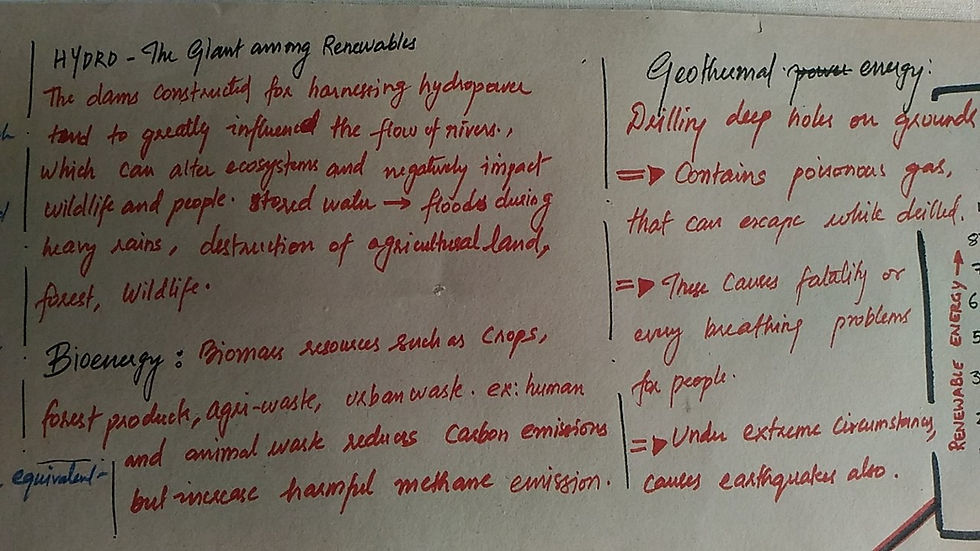 HYDRO - The Giant among Renewables
The dams constructed for harnessing hydropower
tend to greatly influenced the flow of rivers.,
which can alter ecosystems and negatively impact
wildlife and people. stored water → floods during
heavy rains, destruction of agricultural land,
forest, Wildlife.
Bioenergy: Biomass resources such as crops,
forest products, agri-waste, urban waste. ex: human
and animal waste reduces Carbon emissions
but increase harmful methane emission.
equivalent-
Geothermal power energy:
Drilling deep holes on grounds
=> Contains poisonous gas,
that can escape while drilled.
=> These Causes fatality or
every breathing problems
for people.
=> Under extreme Circumstances,
causes earthquakes also.
RENEWABLE ENERGY →
8
6
5
3